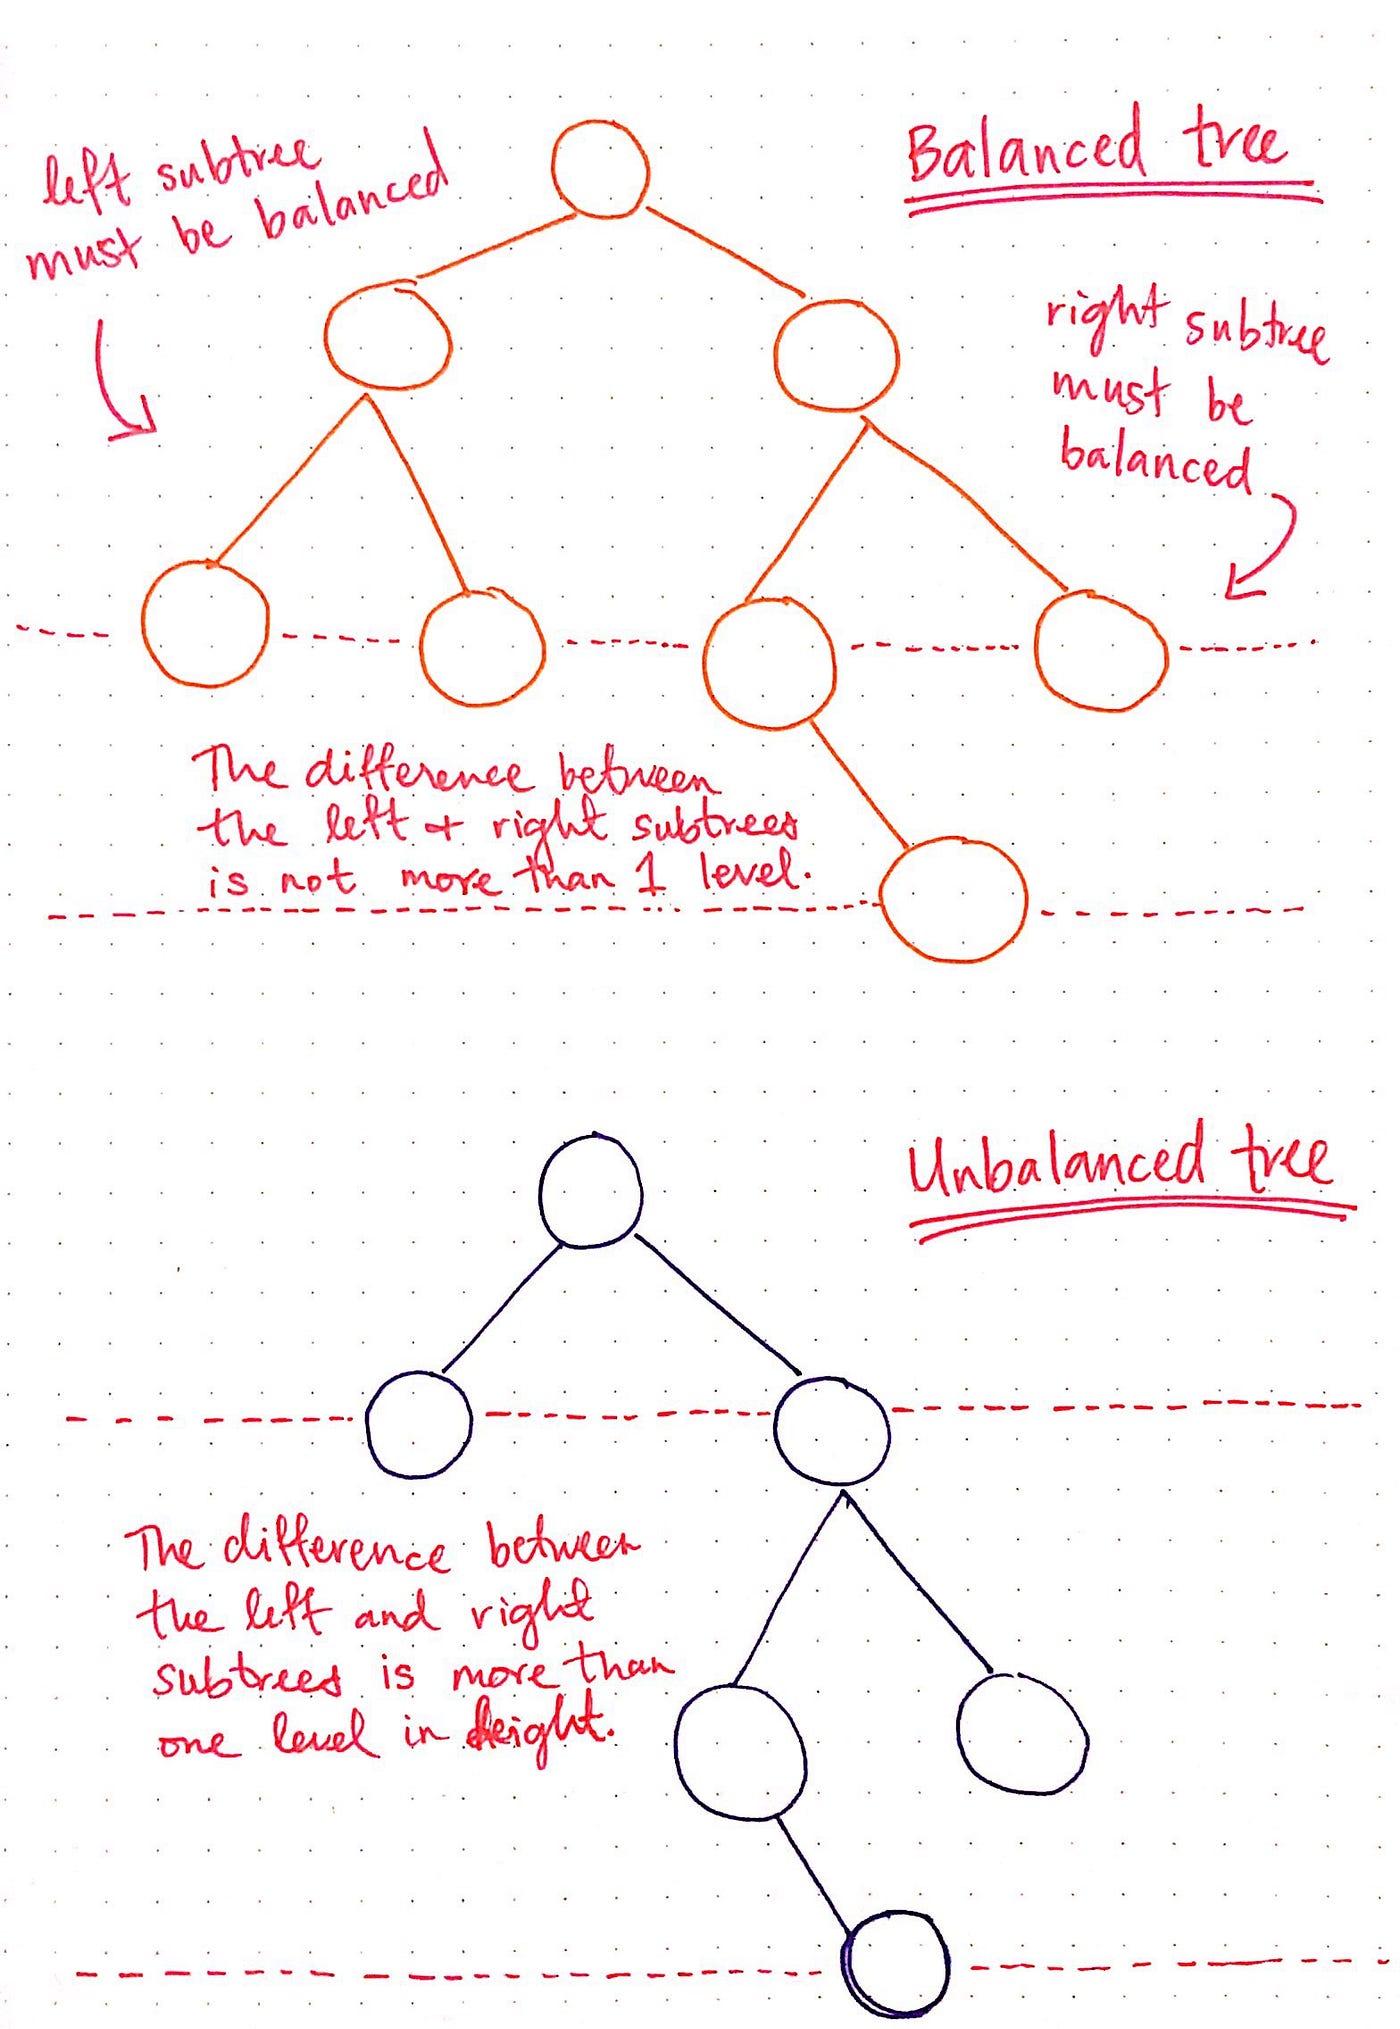 Balanced tree
left subtree
must be balanced
right subtree
must be
balanced
The difference between
the left + right subtrees
is not more than 1 level.
Unbalanced tree
The difference between
the left and right
subtrees is more than
one level in height.